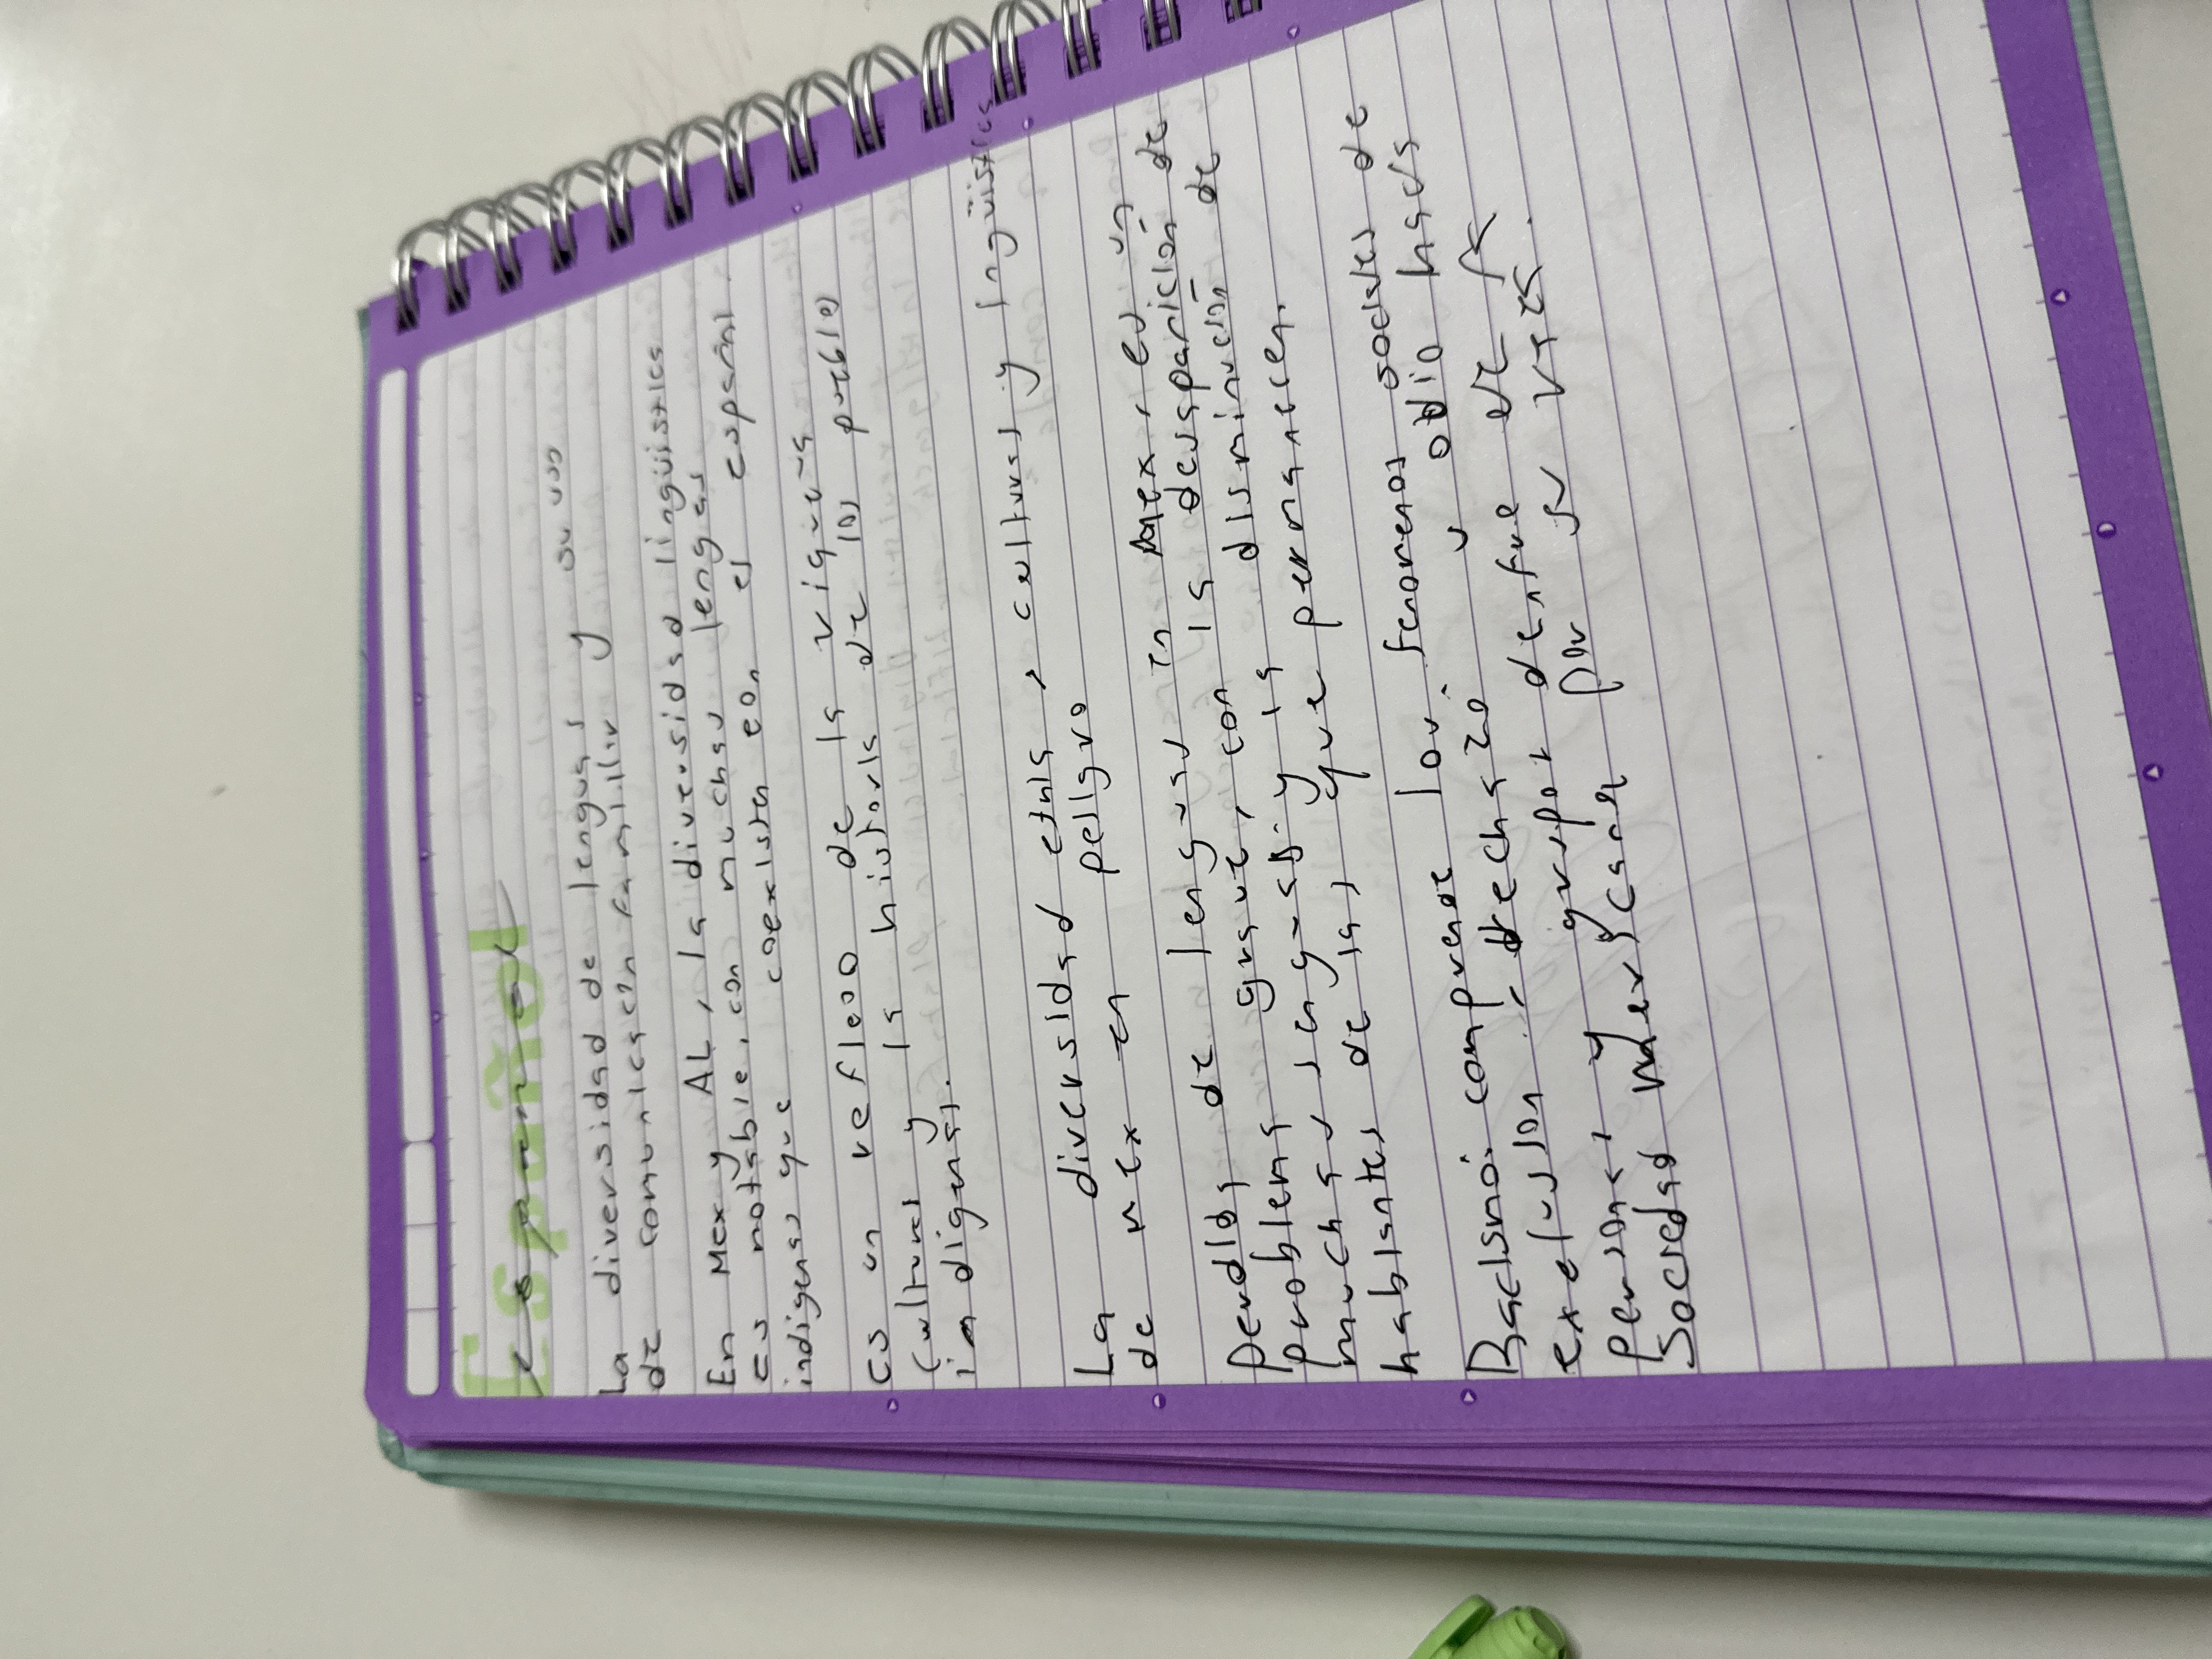 Español
La diversidad de lenguas y su uso
de comunicación familiar
En Mex y AL, la diversidad lingüística
es notable, con muchas lenguas
indigenas que coexisten con el español.
es un reflejo de la riqueza
cultural y la historia de los pueblos
indigenas.
La diversidad etnia, cultural y lingüística
de mex en peligro
Perdida de lenguas en mex, es un
problema grave, con la desaparición de
muchas lenguas y la disminución de
hablantes de las que permanecen.
Racismo: comprende los fenomenos sociales de
exclusion, rechazo u odio hacia
personas y grupos dentro de la
Sociedad por su raza.